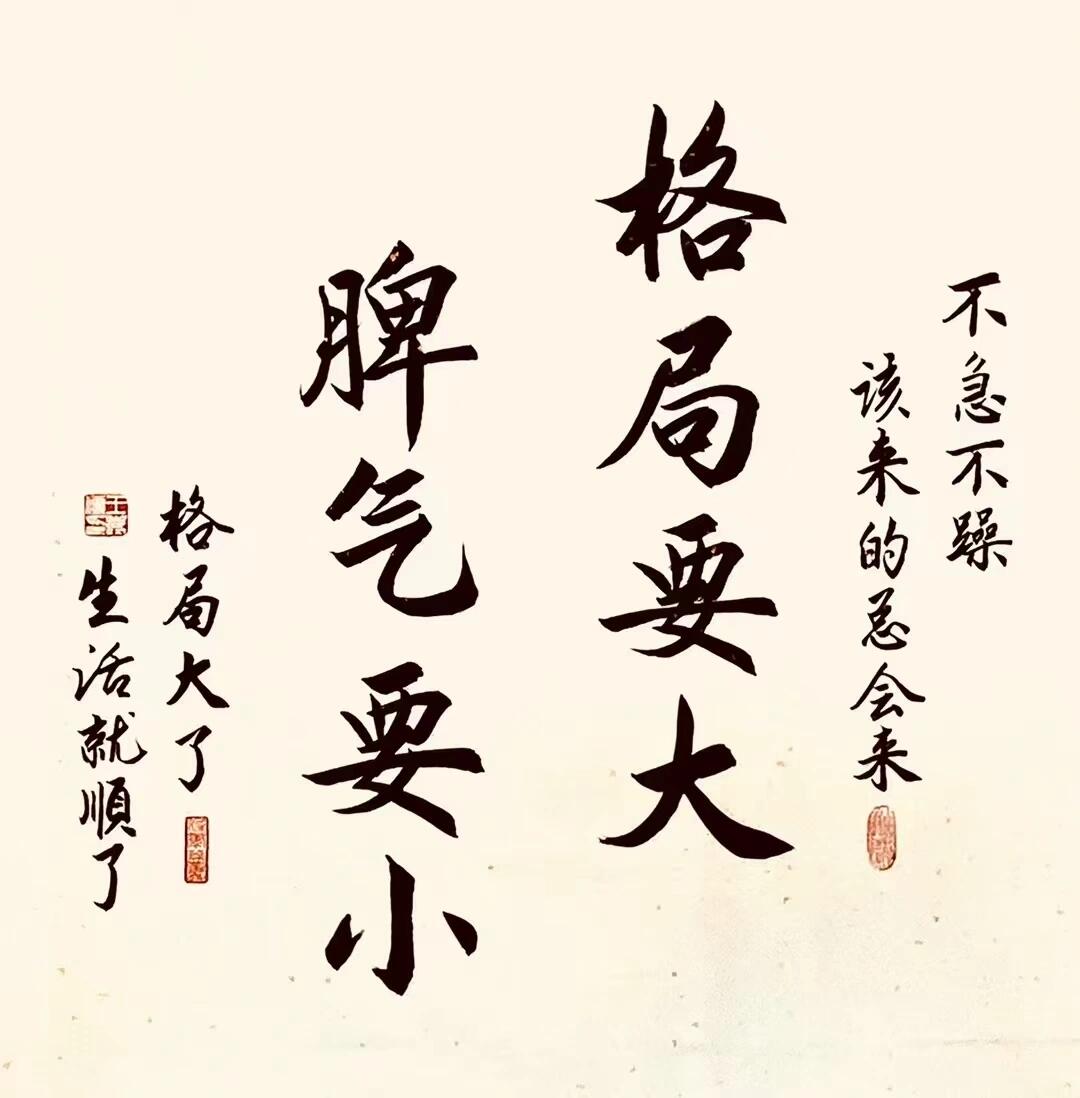 不急不躁
该来的总会来
格局要大
脾气要小
格局大了
生活就順了